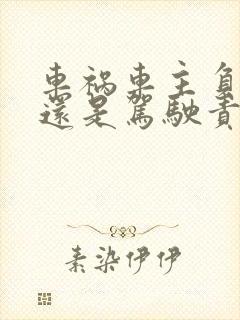 車禍車主負
還是駕駛責
素染伊伊